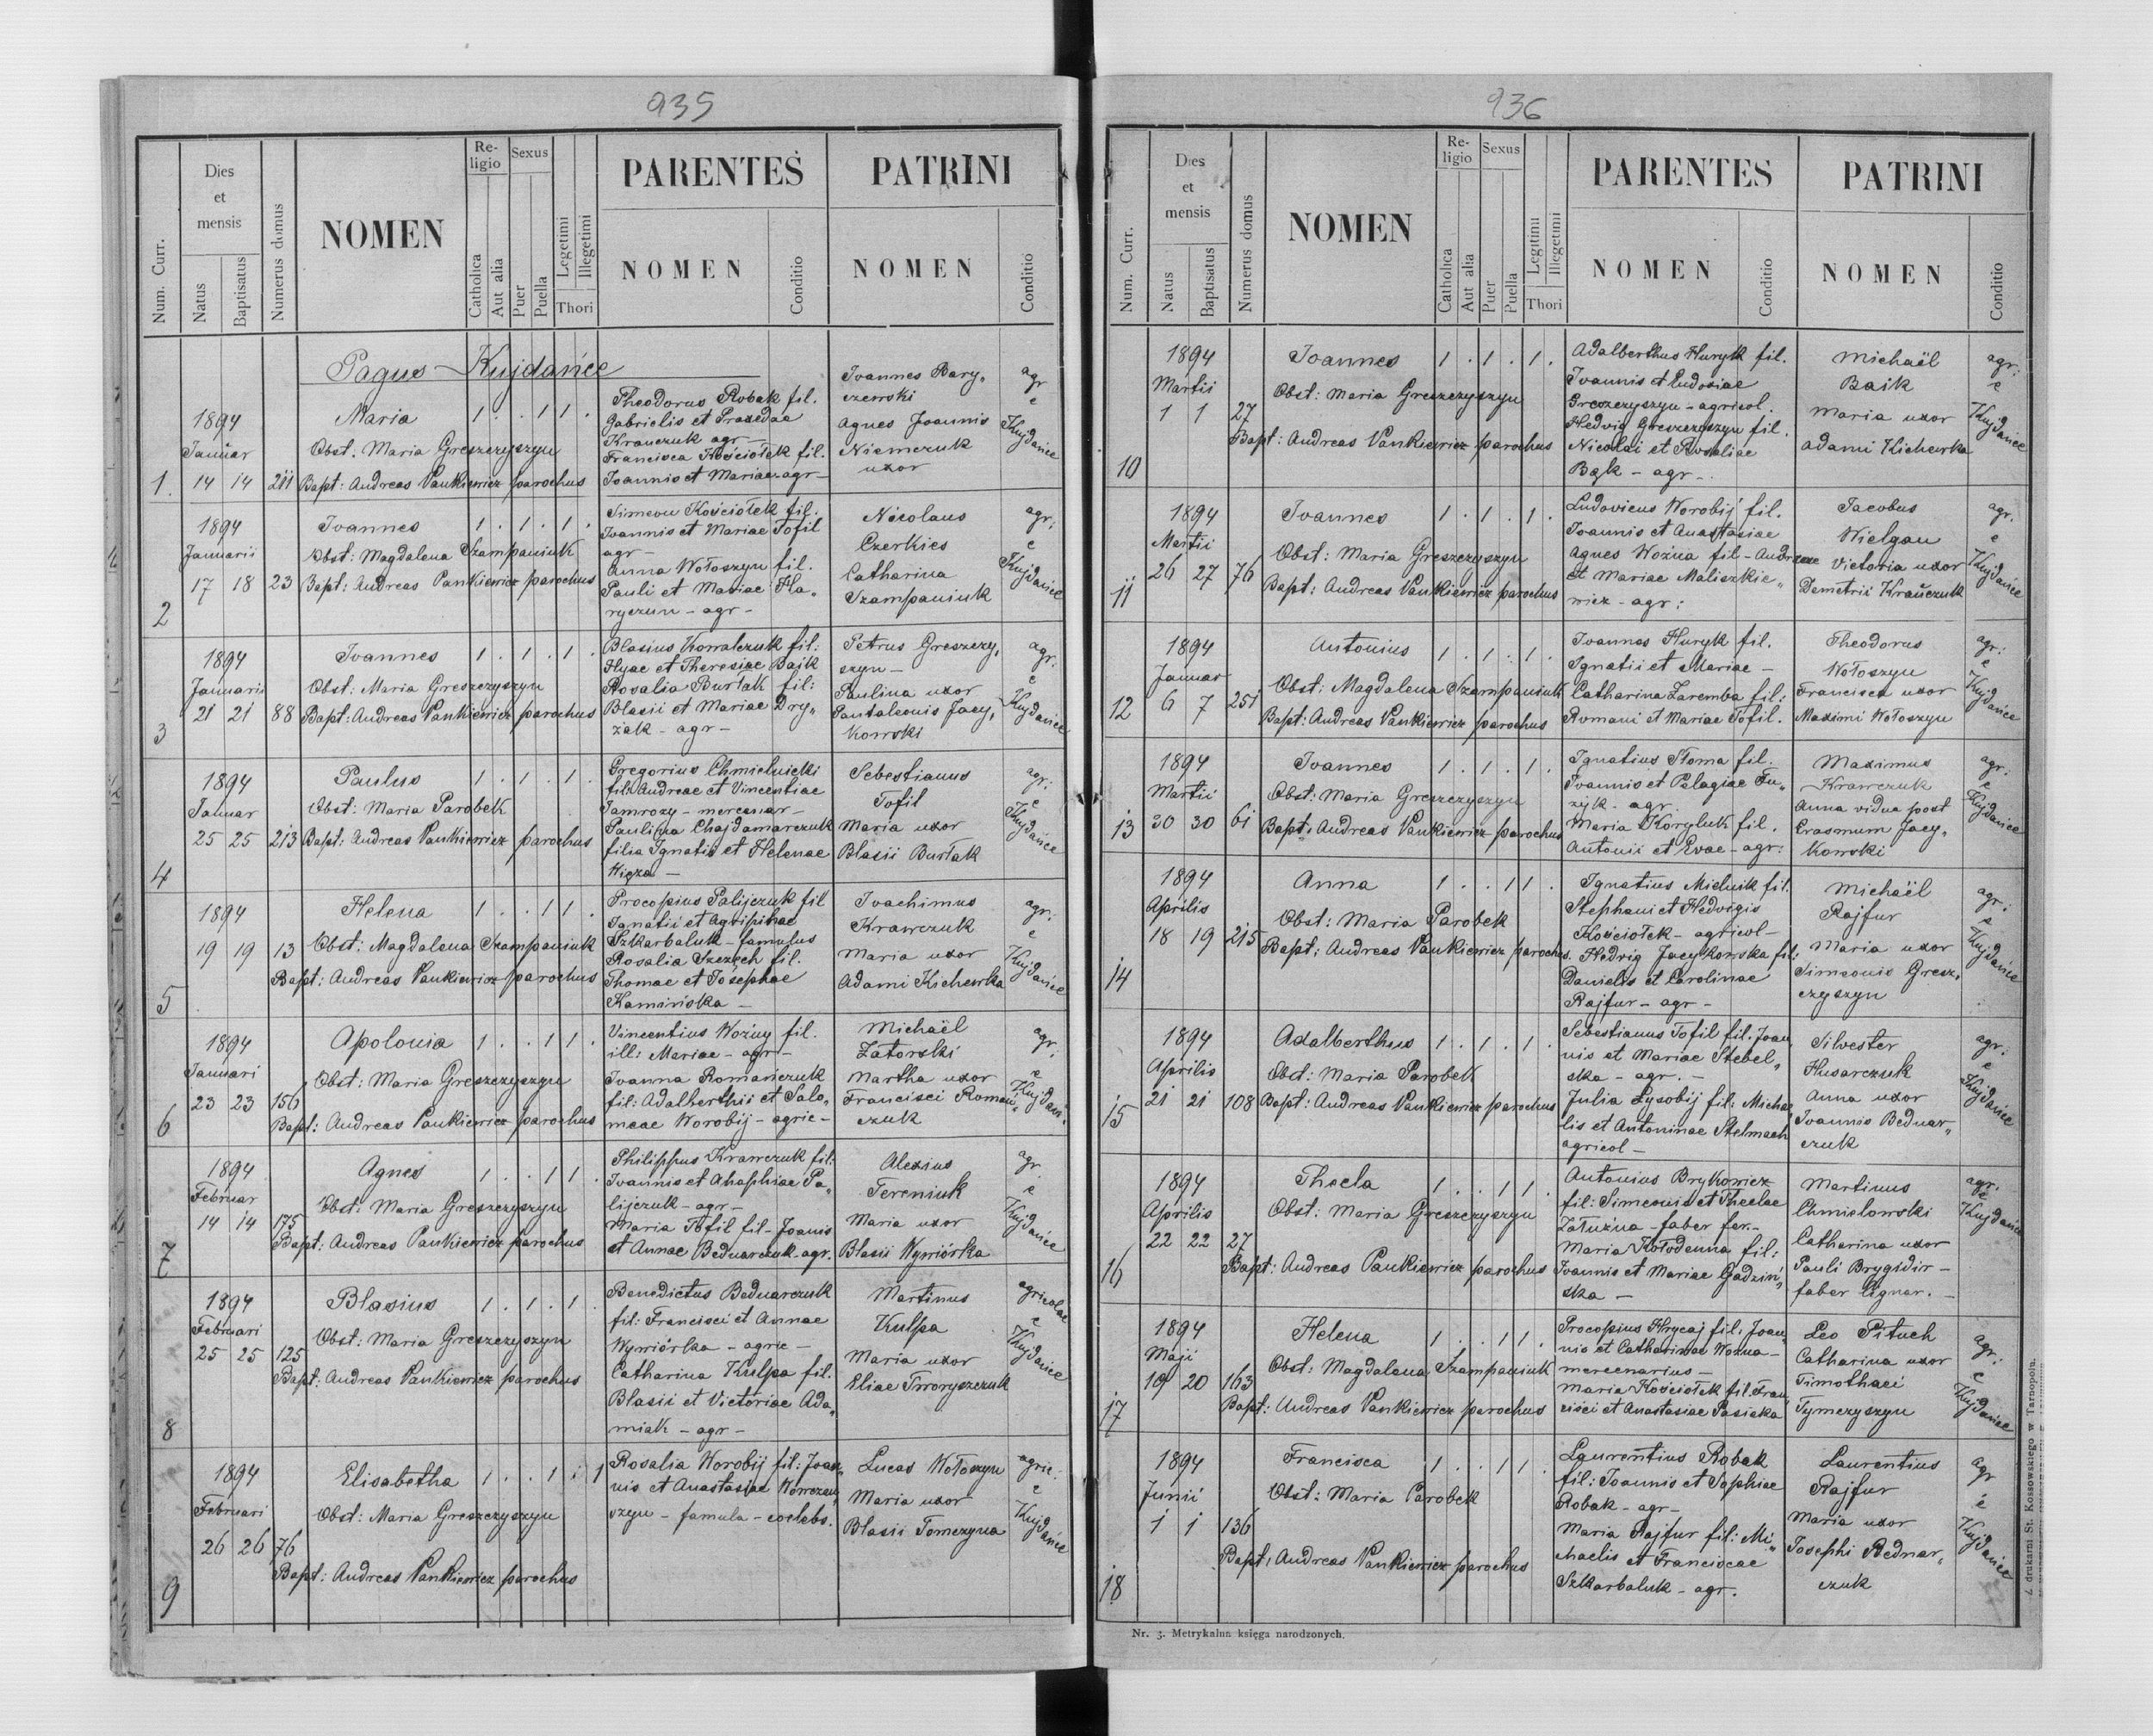 935
Num. Curr.
Dies et mensis
Natus
Baptisatus
Numerus domus
NOMEN
Religio
Catholica
Aut alia
Sexus
Puer
Puella
Legetimi
Illegetimi
Thori
PARENTES
NOMEN
Conditio
PATRINI
NOMEN
Conditio
Pagus Kujdańce
1.
1894
Januar
14 14 211
Maria
1 . . 1 1 .
Obst. Maria Greszczyszyn
Bapt: Andreas Pankiewicz parochus
Theodorus Robak fil.
Gabrielis et Praxedae
Krawczuk agr-
Francisca Kościołek fil.
Joannis et Mariae-agr-
Joannes Bary„
czewski
Agnes Joannis
Niemczuk
uxor
agr
e
Kujdańce
2
1894
Januarii
17 18 23
Joannes
1 . 1 . 1 .
Obst: Magdalena Szampaniuk
Bapt: Andreas Pankiewicz parochus
Simeon Kościołek fil.
Joannis et Mariae Tofil
agr-
Anna Wołoszyn fil.
Pauli et Mariae Ha„
ryczun - agr -
Nicolaus
Czerkies
Catharina
Szampaniuk
agr.
e
Kujdańce
3
1894
Januarii
21 21 88
Joannes
1 . 1 . 1 .
Obst: Maria Greszczyszyn
Bapt: Andreas Pankiewicz parochus
Blasius Kowalczuk fil:
Hyae et Theresiae Bajk
Rosalia Burłak fil:
Blasii et Mariae Dry„
zak - agr -
Petrus Greszczy„
szyn -
Paulina uxor
Pantaleonis Jacy„
kowski
agr.
e
Kujdańce
4
1894
Januar
25 25 213
Paulus
1 . 1 . 1 .
Obst: Maria Parobek
Bapt: Andreas Pankiewicz parochus
Gregorius Chmielnicki
fil: Andreae et Vincentiae
Jamrozy - mercenar -
Paulina Chajdamarczuk
filia Ignatii et Helenae
Więza -
Sebestianus
Tofil
Maria uxor
Blasii Burłak
agr.
e
Kujdańce
5
1894
19 19 13
Helena
1 . . 1 1 .
Obst: Magdalena Szampaniuk
Bapt: Andreas Pankiewicz parochus
Procopius Palijczuk fil
Ignatii et Agripinae
Szkarbaluk - famulus
Rosalia Szezech fil.
Thomae et Josephae
Kamińska -
Joachimus
Krawczuk
Maria uxor
Adami Kichewka
agr.
e
Kujdańce
6
1894
Januari
23 23 156
Apolonia
1 . . 1 1 .
Obst: Maria Greszczyszyn
Bapt: Andreas Pankiewicz parochus
Vincentius Woźny fil.
ill: Mariae - agr -
Joanna Romańczuk
fil: Adalberthii et Salo„
meae Worobij - agric -
Michaël
Zatorski
Martha uxor
Francisci Roman„
czuk
agr.
e
Kujdań.
7
1894
Februar
14 14 175
Agnes
1 . . 1 1 .
Obst: Maria Greszczyszyn
Bapt: Andreas Pankiewicz parochus
Philippus Krawczuk fil:
Joannis et Ahaphiae Pa„
lijczuk - agr -
Maria Tofil fil - Joanis
et Annae Bednarczuk agr.
Alexius
Tereniuk
Maria uxor
Blasii Wywiórka
agr.
e
Kujdańce
8
1894
Februari
25 25 125
Blasius
1 . 1 . 1 .
Obst: Maria Greszczyszyn
Bapt: Andreas Pankiewicz parochus
Benedictus Bednarczuk
fil: Francisci et Annae
Wywiórka - agric -
Catharina Kulpa fil.
Blasii et Victoriae Ada„
miak - agr -
Martinus
Kulpa
Maria uxor
Eliae Tworyszczuk
agricolae
e
Kujdańce
9
1894
Februari
26 26 76
Elisabetha
1 . . 1 . 1
Obst: Maria Greszczyszyn
Bapt: Andreas Pankiewicz parochus
Rosalia Worobij fil: Joan„
nis et Anastasiae
szyn - famula - coelebs.
Lucas Wołoszyn
Maria uxor
Blasii Tomczyna
agric.
e
Kujdańce
936
Num. Curr.
Dies et mensis
Natus
Baptisatus
Numerus domus
NOMEN
Religio
Catholica
Aut alia
Sexus
Puer
Puella
Legitimi
Illegetimi
Thori
PARENTES
NOMEN
Conditio
PATRINI
NOMEN
Conditio
10
1894
Martii
1 1 27
Joannes
1 . 1 . 1 .
Obst: Maria Greszczyszyn
Bapt: Andreas Pankiewicz parochus
Adalberthus Huryk fil.
Joannis et Eudoxiae
Greszczyszyn - agricol.
Hedvig Greszczyszyn fil.
Nicolai et Rosaliae
Bąk - agr -.
Michaël
Baik
Maria uxor
Adami Kichewka
agr:
e
Kujdańce
11
1894
Martii
26 27 76
Joannes
1 . 1 . 1 .
Obst: Maria Greszczyszyn
Bapt: Andreas Pankiewicz parochus
Ludovicus Worobij fil.
Joannis et Anastasiae
Agnes Woźna fil - Andreae
et Mariae Maliszkie„
wicz - agr:
Jacobus
Wielgan
Victoria uxor
Demetrii Krawczuk
agr.
e
Kujdańce
12
1894
Januar
6 7 251
Antonius
1 . 1 . 1 .
Obst: Magdalena Szampaniuk
Bapt: Andreas Pankiewicz parochus
Joannes Huryk fil.
Ignatii et Mariae -
Catharina Zaremba fil:
Romani et Mariae Tofil.
Theodorus
Wołoszyn
Francisca uxor
Maximi Wołoszyn
agr:
e
Kujdańce
13
1894
Martii
30 30 61
Joannes
1 . 1 . 1 .
Obst: Maria Greszczyszyn
Bapt: Andreas Pankiewicz parochus
Ignatius Słoma fil.
Joannis et Pelagiae Fu„
zyk - agr.
Maria Koryluk fil.
Antonii et Evae - agr:
Maximus
Krawczuk
Anna vidua post
Erasmum Jacy„
kowski
agr:
e
Kujdańce
14
1894
Aprilis
18 19 215
Anna
1 . . 1 1 .
Obst: Maria Parobek
Bapt: Andreas Pankiewicz parochus.
Ignatius Mielnik fil.
Stephani et Hedvigis
Kościołek - agricol -
Hedvig Jacykowska fil:
Danielis et Carolinae
Rajfur - agr -
Michaël
Rajfur
Maria uxor
Simeonis Gresz„
czyszyn
agr:
e
Kujdańce
15
1894
Aprilis
21 21 108
Adalberthus
1 . 1 . 1 .
Obst: Maria Parobek
Bapt: Andreas Pankiewicz parochus
Sebestianus Tofil fil. Joan„
nis et Mariae Stebel„
ska - agr. -
Julia Lysobij fil: Micha„
lis et Antoninae Stelmach
agricol -
Silvester
Husarczuk
Anna uxor
Joannis Bednar„
czuk
agr:
e
Kujdańce
16
1894
Aprilis
22 22 27
Thecla
1 . . 1 1 .
Obst: Maria Greszczyszyn
Bapt: Andreas Pankiewicz parochus
Antonius Brykowicz
fil: Simeonis et Theclae
Załuźna - faber fer.-
Maria Kołodenna fil:
Joannis et Mariae Gadziń„
ska -
Martinus
Chmielowski
Catharina uxor
Pauli Brygidir -
faber lignar. -
agr.
e
Kujdańce
17
1894
Maji
19 20 163
Helena
1 . . 1 1 .
Obst: Magdalena Szampaniuk
Bapt: Andreas Pankiewicz parochus
Procopius Hrycaj fil: Joan„
nis et Catharinae Woźna -
mercenarius -
Maria Kościołek fil. Fran„
cisci et Anastasiae Pasieka
Leo Pituch
Catharina uxor
Timothaei
Tymczyszyn
agr:
e
Kujdańce
18
1894
Junii
1 1 136
Francisca
1 . . 1 1 .
Obst: Maria Parobek
Bapt: Andreas Pankiewicz parochus
Laurentius Robak
fil: Joannis et Sophiae
Robak - agr -
Maria Rajfur fil: Mi„
chaelis et Franciscae
Szkarbaluk - agr.
Laurentius
Rajfur
Maria uxor
Josephi Bednar„
czuk
agr
e
Kujdańce
Nr. 3. Metrykalna księga narodzonych.
Z drukarni St. Kossowskiego w Tarnopolu.